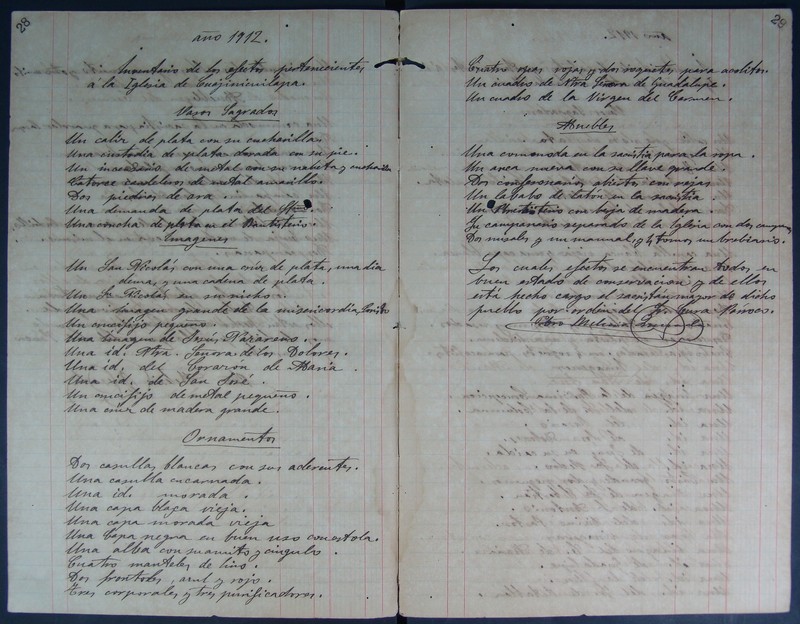 28
año 1912.
Inventario de los efectos pertenecientes
á la Iglesia de Cuajinicuilapa.
Vasos Sagrados
Un caliz de plata con su cucharilla.
Una custodia de plata dorada con su pie.
Un incensario de metal con su naveta y cucharilla
Catorce candeleros de metal amarillo.
Dos piedras de ara.
Una demanda de plata del
Una concha de plata en el Bautisterio.
Imagenes
Un San Nicolás con una cruz de plata, una dia
dema, y una cadena de plata.
Un Sr. Nicolás en su nicho.
Una Imagen grande de la misericordia,
Un crucifijo pequeño.
Una Imagen de Jesus Nazareno.
Una id. Ntra. Señora de los Dolores.
Una id. del Corazon de Maria
Una id. de San José.
Un crucifijo de metal pequeño.
Una cruz de madera grande.
Ornamentos
Dos casullas blancas con sus aderentes.
Una casulla encarnada.
Una id. morada.
Una capa blaca vieja.
Una capa morada vieja
Una Capa negra en buen uso con estola.
Una alba con su amito y cíngulo.
Cuatro manteles de lino.
Dos frontales, azul y rojo.
Tres corporales y tres purificadores.
29
Cuatro opas rojas y dos roquetes para acolitos.
Un cuadro de Ntra Señora de Guadalupe.
Un cuadro de la Virgen del Carmen.
Muebles
Una comonoda en la sacristia para la ropa.
Un arca nueva con su llave grande.
Dos confesonarios abiertos con rejas
Un lavabo de laton en la sacristia.
Un Bautisterio con baja de madera.
Su campanario separado de la Iglesia con dos campanas
Dos misales y un manual, y 4 tomos un brebiario.
Los cuales efectos se encuentran todos en
buen estado de conservacion y de ellos
está hecho cargo el sacristán mayor de dicho
pueblo por orden del Sr. Cura Parroco.